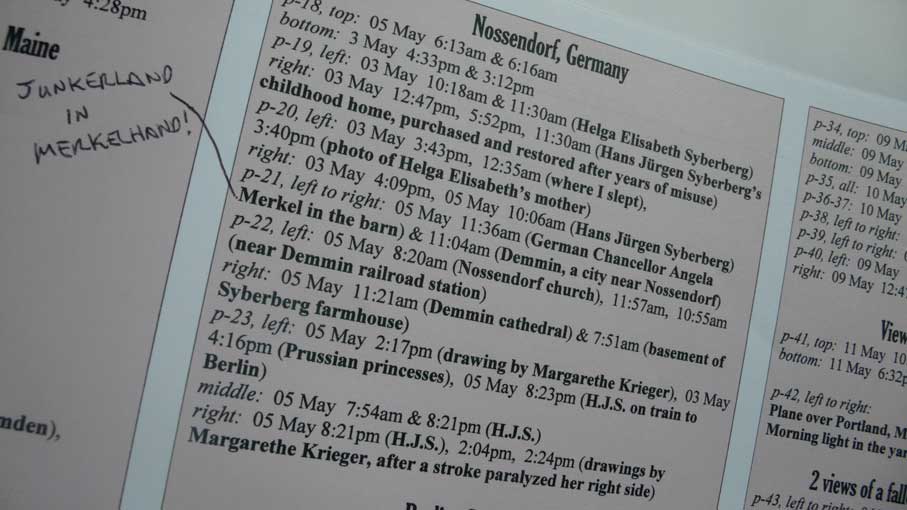 4:28pm
Maine
JUNKERLAND
IN
MERKELHAND!
mden),
Nossendorf, Germany
p-18, top: 05 May 6:13am & 6:16am
bottom: 3 May 4:33pm & 3:12pm
p-19, left: 03 May 10:18am & 11:30am (Helga Elisabeth Syberberg)
right: 03 May 12:47pm, 5:52pm, 11:30am (Hans Jürgen Syberberg's
childhood home, purchased and restored after years of misuse)
p-20, left: 03 May 3:43pm, 12:35am (where I slept),
3:40pm (photo of Helga Elisabeth's mother)
right: 03 May 4:09pm, 05 May 10:06am (Hans Jürgen Syberberg)
p-21, left to right: 05 May 11:36am (German Chancellor Angela
Merkel in the barn) & 11:04am (Demmin, a city near Nossendorf)
p-22, left: 05 May 8:20am (Nossendorf church), 11:57am, 10:55am
(near Demmin railroad station)
right: 05 May 11:21am (Demmin cathedral) & 7:51am (basement of
Syberberg farmhouse)
p-23, left: 05 May 2:17pm (drawing by Margarethe Krieger), 03 May
4:16pm (Prussian princesses), 05 May 8:23pm (H.J.S. on train to
Berlin)
middle: 05 May 7:54am & 8:21pm (H.J.S.)
right: 05 May 8:21pm (H.J.S.), 2:04pm, 2:24pm (drawings by
Margarethe Krieger, after a stroke paralyzed her right side)
p-34, top: 09 M
middle: 09 May
bottom: 09 May
p-35, all: 10 May
p-36-37: 10 May
p-38, left to right:
p-39, left to right:
p-40, left: 09 May
right: 09 May 12:4
View
p-41, top: 11 May 10
bottom: 11 May 6:32p
p-42, left to right:
Plane over Portland, M
Morning light in the yar
2 views of a fall
p-43, left to right: